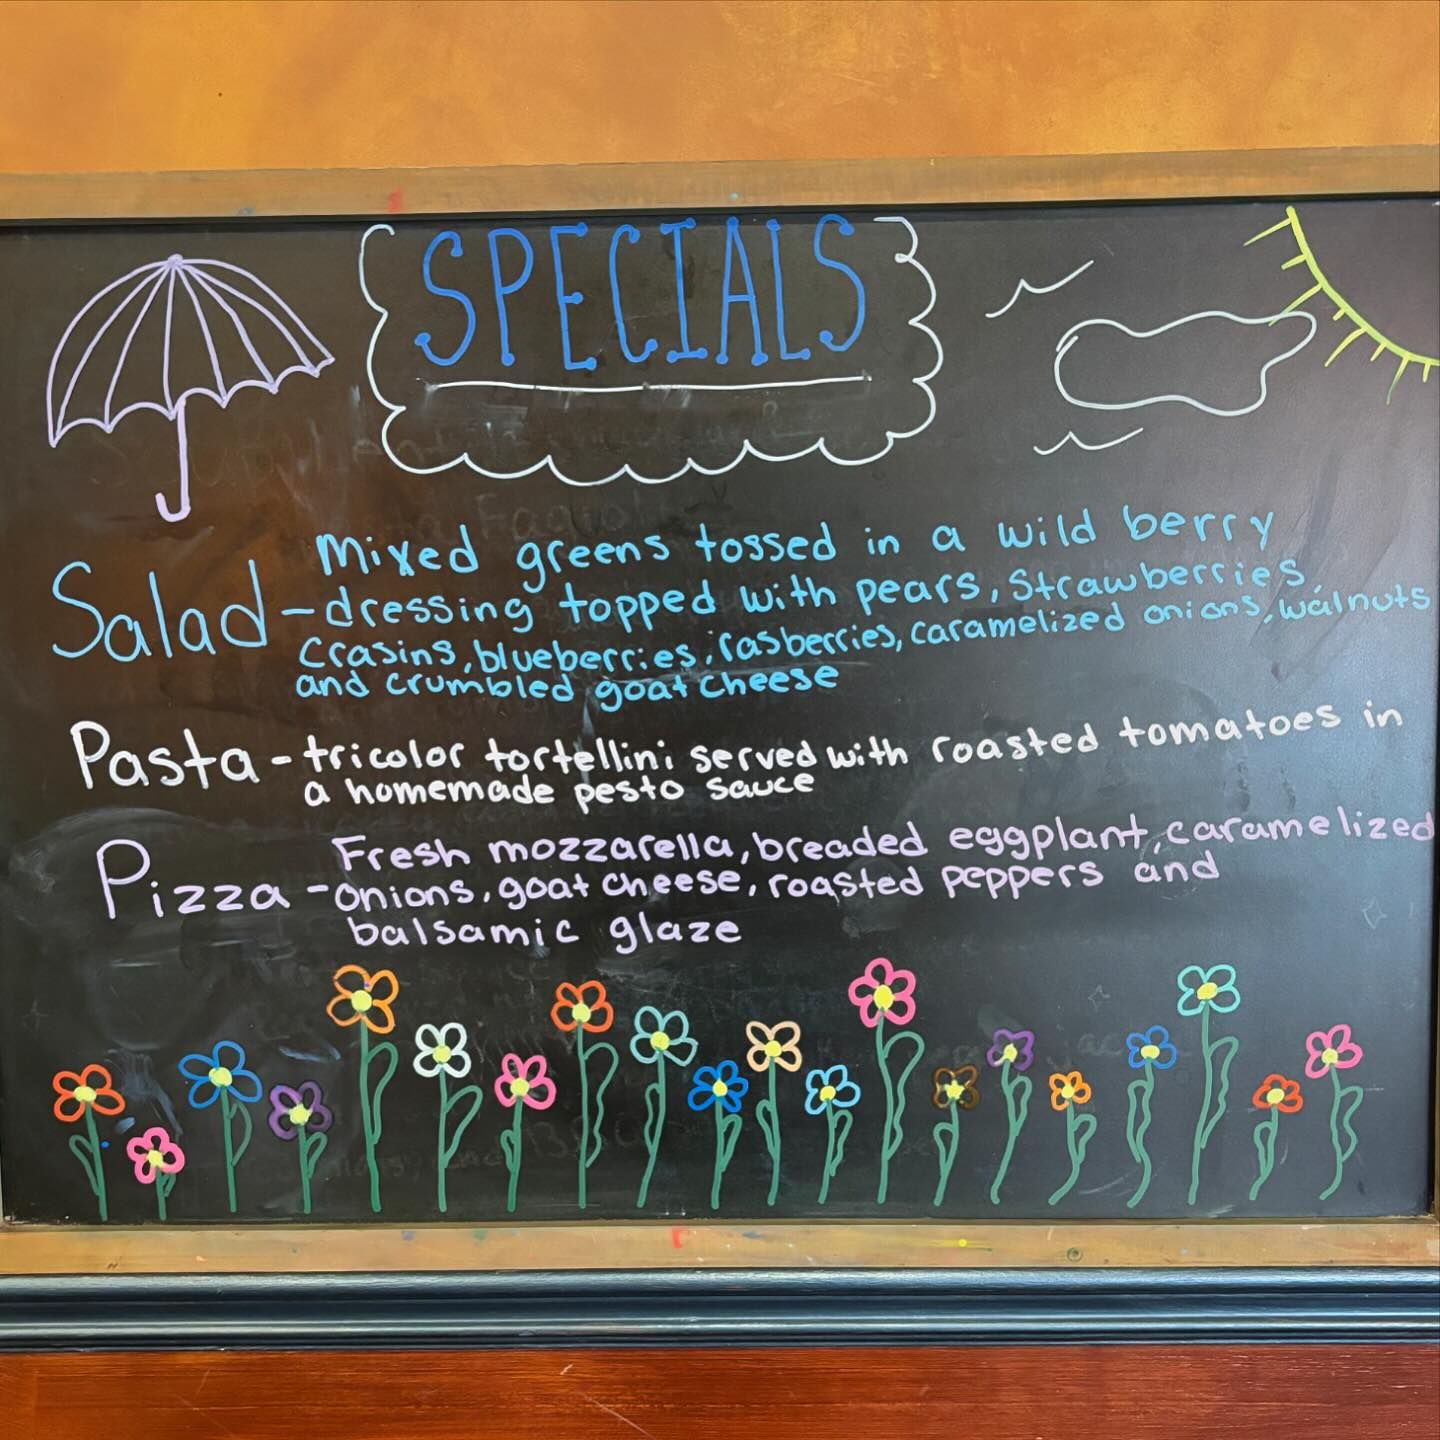 SPECIALS
Mixed greens tossed in a wild berry
Salad - dressing topped with pears, strawberries,
crasins, blueberries, rasberries, caramelized onions, walnuts
and crumbled goat cheese
Pasta - tricolor tortellini served with roasted tomatoes in
a homemade pesto sauce
Fresh mozzarella, breaded eggplant, caramelized
Pizza - onions, goat cheese, roasted peppers and
balsamic glaze